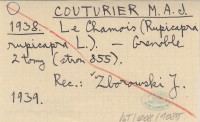 COUTURIER M.A.J.
1938. Le Chamois (Rupicapra
rupicapra L.). — Grenoble
2 tomy (stron 855).
Rec.: Zborowski J.
1939.